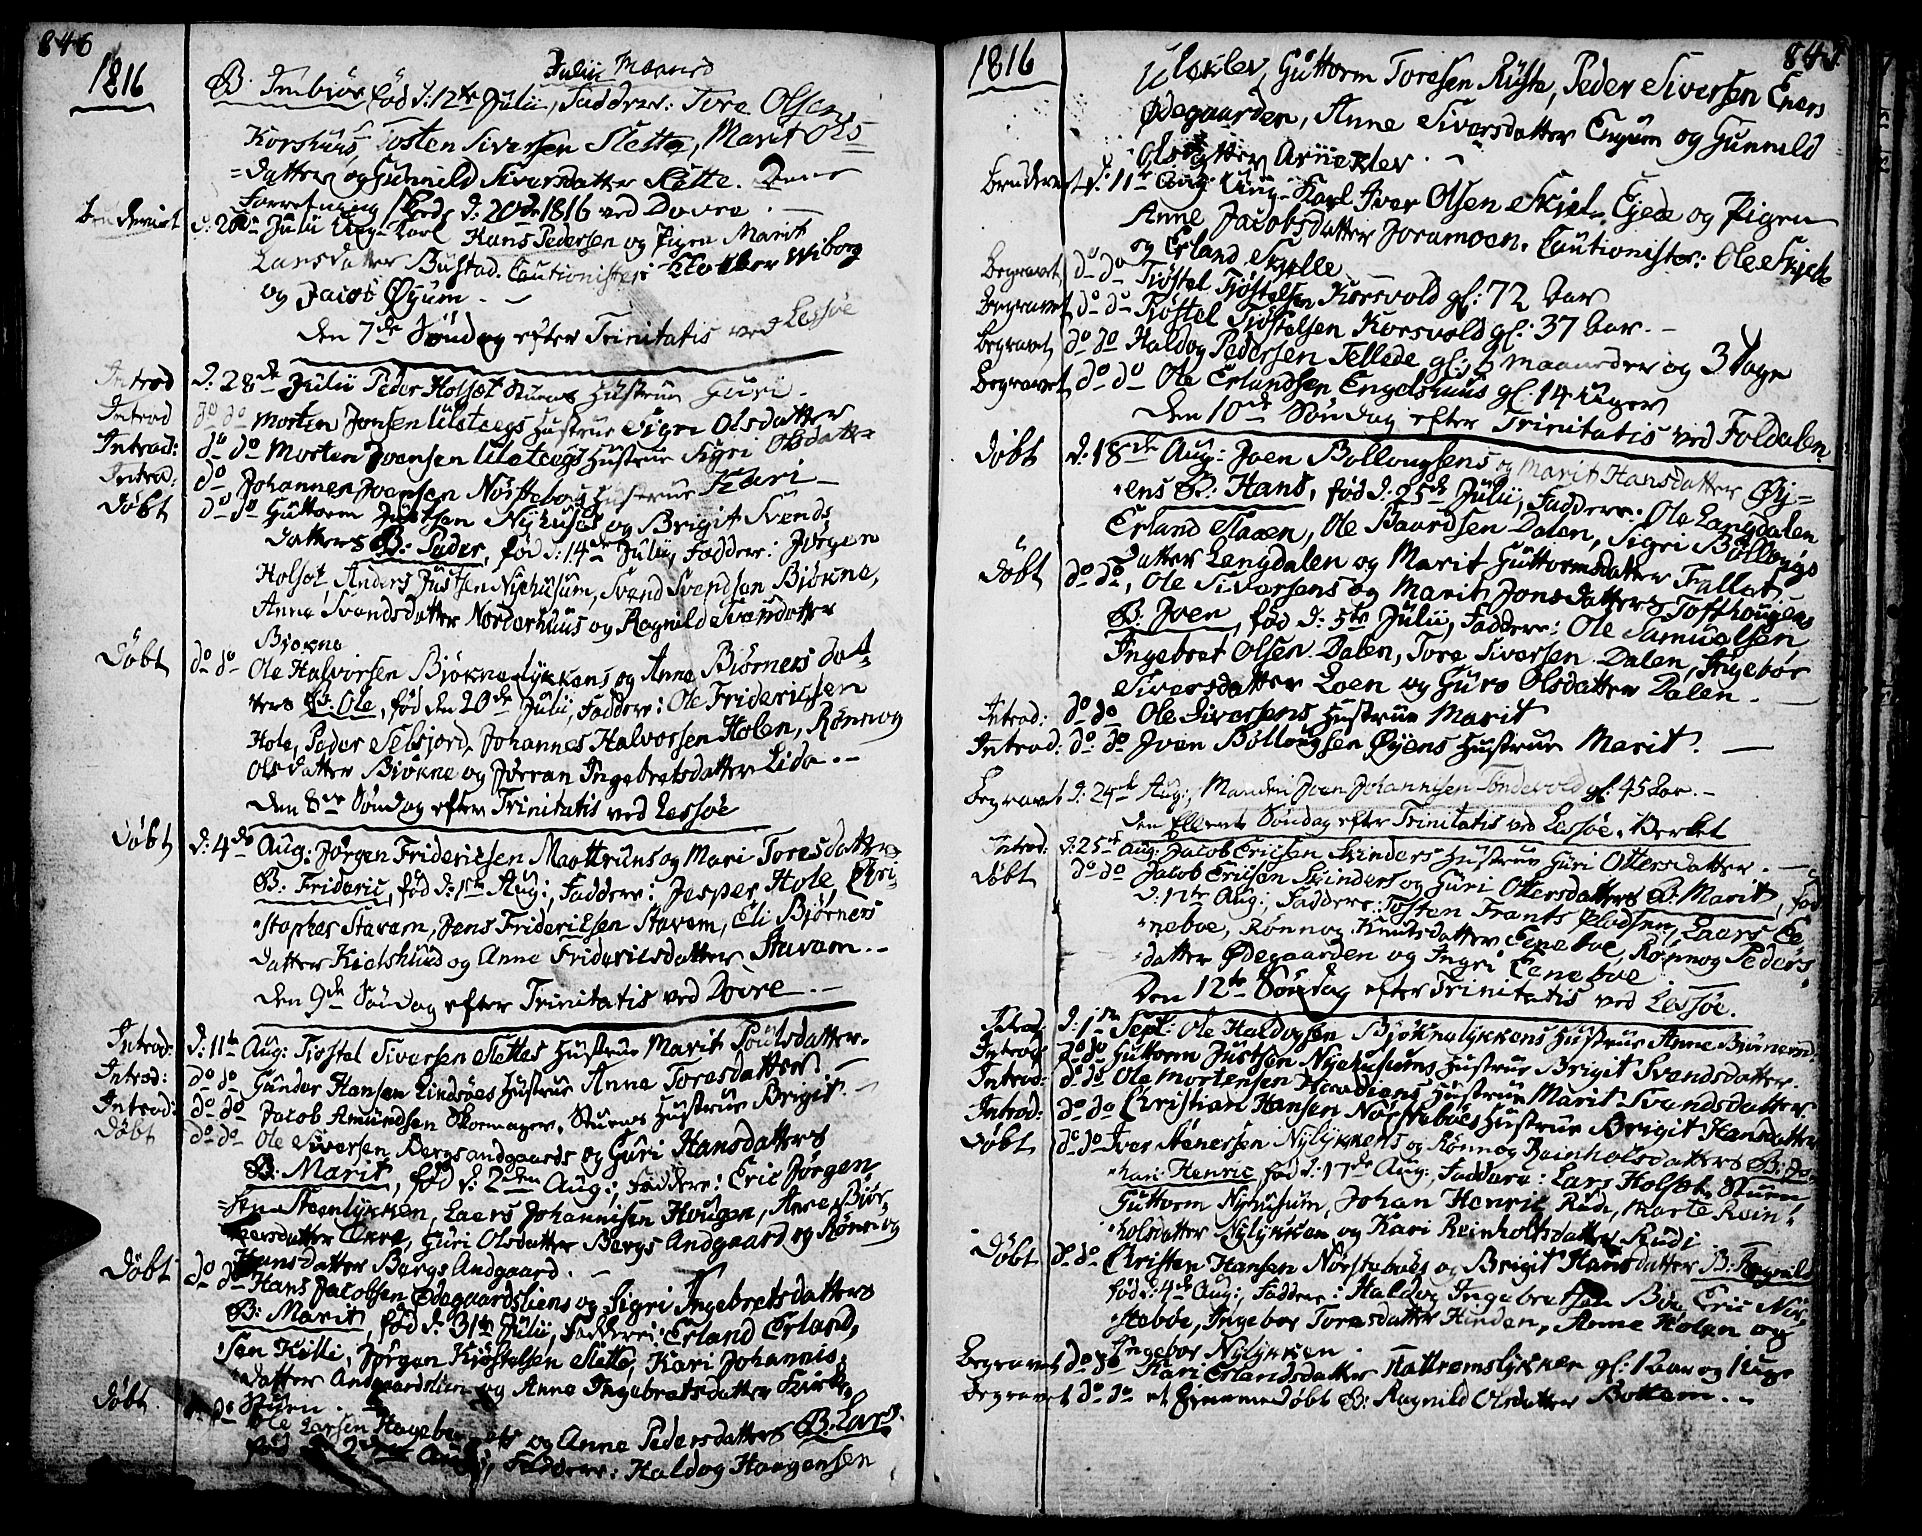 846
1816
Julii Maaned
B. Imbiør fød d: 12te Julii, Faddere: Tore Olsen
Korshuus, Tosten Siversen Slette, Marit Ols
=datter og Gunnild Siversdatter Slette. Denne
Forretning skede d: 20de 1816 ved Dovre. —
Bruderviet d: 20de Julii Ung-Karl Hans Pedersen og Pigen Marit
Larsdatter Bustad. Cautionister: Wiborg
og Jacob Øÿum. —
Den 7de Søndag efter Trinitatis ved Lessøe
Introd d: 28de Julii Peder Holset Stuens Hustrue Guri.
Introd do do Morten Jonsen Ulstegs Hustrue Sigri Olsdatter
Introd: do do Morten Joensen Ulstegs Hustrue Sigri Olsdatter
Introd: do Johannen Joensen Nørstebøes Hustrue Kari —
Døbt do do Guttorm Justsen Nyhuses og Brigit Svends
datters B: Peder, fød d: 14de Julii, Faddere: Jørgen
Holset, Anders Justsen Nyehusum, Svend Svendsen Biøkne,
Anne Svendsdatter Norderhuus og Ragnild Svendsdatter
Biøkne
Døbt do do Ole Halvorsen Bjøknelykkens og Anne Biørners dat
ters B: Ole, fød den 20de Julii, Faddere: Ole Friderichsen
Hole, Peder Selsjord, Johannes Halvorsen Holen, Rønnog
Olsdatter Biøkne og Jørran Ingebretsdatter Lide. —
Den 8de Søndag efter Trinitatis ved Lessøe
Døbt d: 4de Aug: Jørgen Fridericsen og Mari Toresdatters
B: Frideric, fød d: 1ste Aug:, Faddere: Jesper Hole, Chri-
stopher Stavem, Jens Fridericsen Stavem, Eli Bjørners
datter Kielshuud og Anne Fridericsdatter Stavem. —
Den 9de Søndag efter Trinitatis ved Dovre. —
Introd: d: 11te Aug: Tjøstel Siversen Slettes Hustrue Marit Poulsdatter.
Introd: do do Gunder Hansen Lindsøes Hustrue Anne Toresdatter.
Introd: do do Jacob Amundsen Skomager, Stuens Hustrue Brigit. —
Døbt do do Ole Siversen Bergsandgaards og Guri Hansdatters
B: Marit, fød d: 2den Aug:, Faddere: Eric Jørgen
sen Steenlykken, Laers Johannisen Hougen, Anne Biør
nersdatter Øvre, Guri Olsdatter Bergs Andgaard og Rønnog
Hansdatter Bergs Andgaard. —
Døbt do do Hans Jacobsen Ødegaardsliens og Sigri Ingebretsdatters
B: Marit, fød d: 31te Julii, Faddere: Erland Erland
sen Kille, Jørgen Kjøstelsen Slette, Kari Johannis
datter Andgaardslien og Anne Ingebretsdatter
Stuen.
Døbt do do Ole Larsen og Anne Pedersdatters B: Lars
fød 2den Aug:, Faddere: Haldog Haagensen
1816
847
Guttorm Toresen Ryste, Peder Siversen Eners
Ødegaarden, Anne Siversdatter Enqum og Gunnild
Olsdatter Arneklev. —
Bruderviet d: 11te Aug: Ung-Karl Iver Olsen Skiel, Ejede og Pigen
Anne Jacobsdatter Joramoen. Cautionister: Ole Skjelle
og Erland Skjelle
Begravet do do Tjøstel Tjøstelsen Korsvold gl: 72 Aar
Begravet do do Tjøstel Tjøstelsen Korsvold gl: 37 Aar. —
Begravet do do Haldog Pedersen Tellede gl: maaneder og 3 Dage
Begravet do do Ole Erlandsen Engelshuus gl: 14 Uger
Den 10de Søndag efter Trinitatis ved Foldalen
Døbt d: 18de Aug: Joen Bollougsens og Marit Hansdatter Øÿ=
ens B: Hans, fød d: 25de Julii, Faddere: Ole Langdalen
Erland Slaaen, Ole Baardsen Dalen, Sigri Bøllougs
datter Lengdalen og Marit Guttormsdatter Fallet.
Døbt do do, Ole Siversens og Marit Jonsdatters Tofthougens
B. Joen, fød d: 5te Julii, Faddere: Ole Samuelsen
Ingebret Olsen Dalen, Tore Siversen Dalen, Ingebør
Siversdatter Loen og Guro Olsdatter Dalen. —
Introd: do do Ole Siversens Hustrue Marit
Introd: do do Joen Bollougsen Øyens Hustrue Marit. —
Begravet d: 24de Aug:, Manden Joen Johannisen Tondevold gl: 45 Aar. —
Den Ellevte Søndag efter Trinitatis ved Lessøe-Verket
Introd: d: 25de Aug: Jacob Ericsen Skinders Hustrue Guri Ottersdatter. —
Døbt do do Jacob Ericsen Svinders og Guri Ottersdatters B: Marit, fød
d: 1ste Aug:, Faddere: Tosten Frants Plodsen, Laers Ee
neboe, Rønnog Knutsdatter Eeneboe, Rønnog Peders
datter Ødegaarden og Ingri Eeneboe.
Den 12te Søndag efter Trinitatis ved Lessøe.
Introd: d: 1ste Sept: Ole Haldogsen Bjøknelykkens Hustrue Anne Biørnersd:
Introd: do do Guttorm Justsen Nyehusums Hustrue Brigit Svendsdatter.
Introd: do do Ole Mortensen Hustrue Marit Svendsdatter
Introd: do do Christian Hansen Nørstebøes Hustrue Brigit Hansdatter
Døbt do do Iver Stenersen Nylykkens og Rønnog Reinholsdatters B: Jo=
han Henric fød d: 17de Aug: Faddere: Lars Holset, Stuen
Guttorm Nyehusum, Johan Henric Rud, Marte Rein
holsdatter Nylykken og Kari Reinholtsdatter Rudi.
Døbt do do Christen Hansen Nørstebøes og Brigit Hansdatter B: Ragnild
fød d: 4de Aug:, Faddere: Haldog Ingebretsen Bøe, Eric Nør
stebøe, Ingebor Toresdatter Hinden, Anne Holen og
Ingebor Nylykken.
Begravet do do Kari Erlandsdatter Kattromslykken gl: 1 Aar og 1 Uge
Begravet do do et Hjemmedøbt B: Ragnild Olsdatter Bottem. —